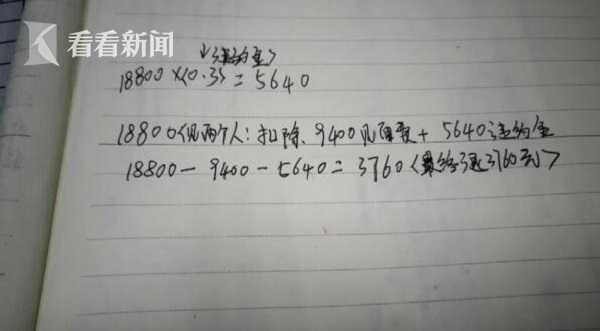 看看新闻
↓<违约金>
18800×(0.3)=5640
18800仅两个人:扣除、9400见面费+5640违约金
18800-9400-5640=3760<最终退3760元>